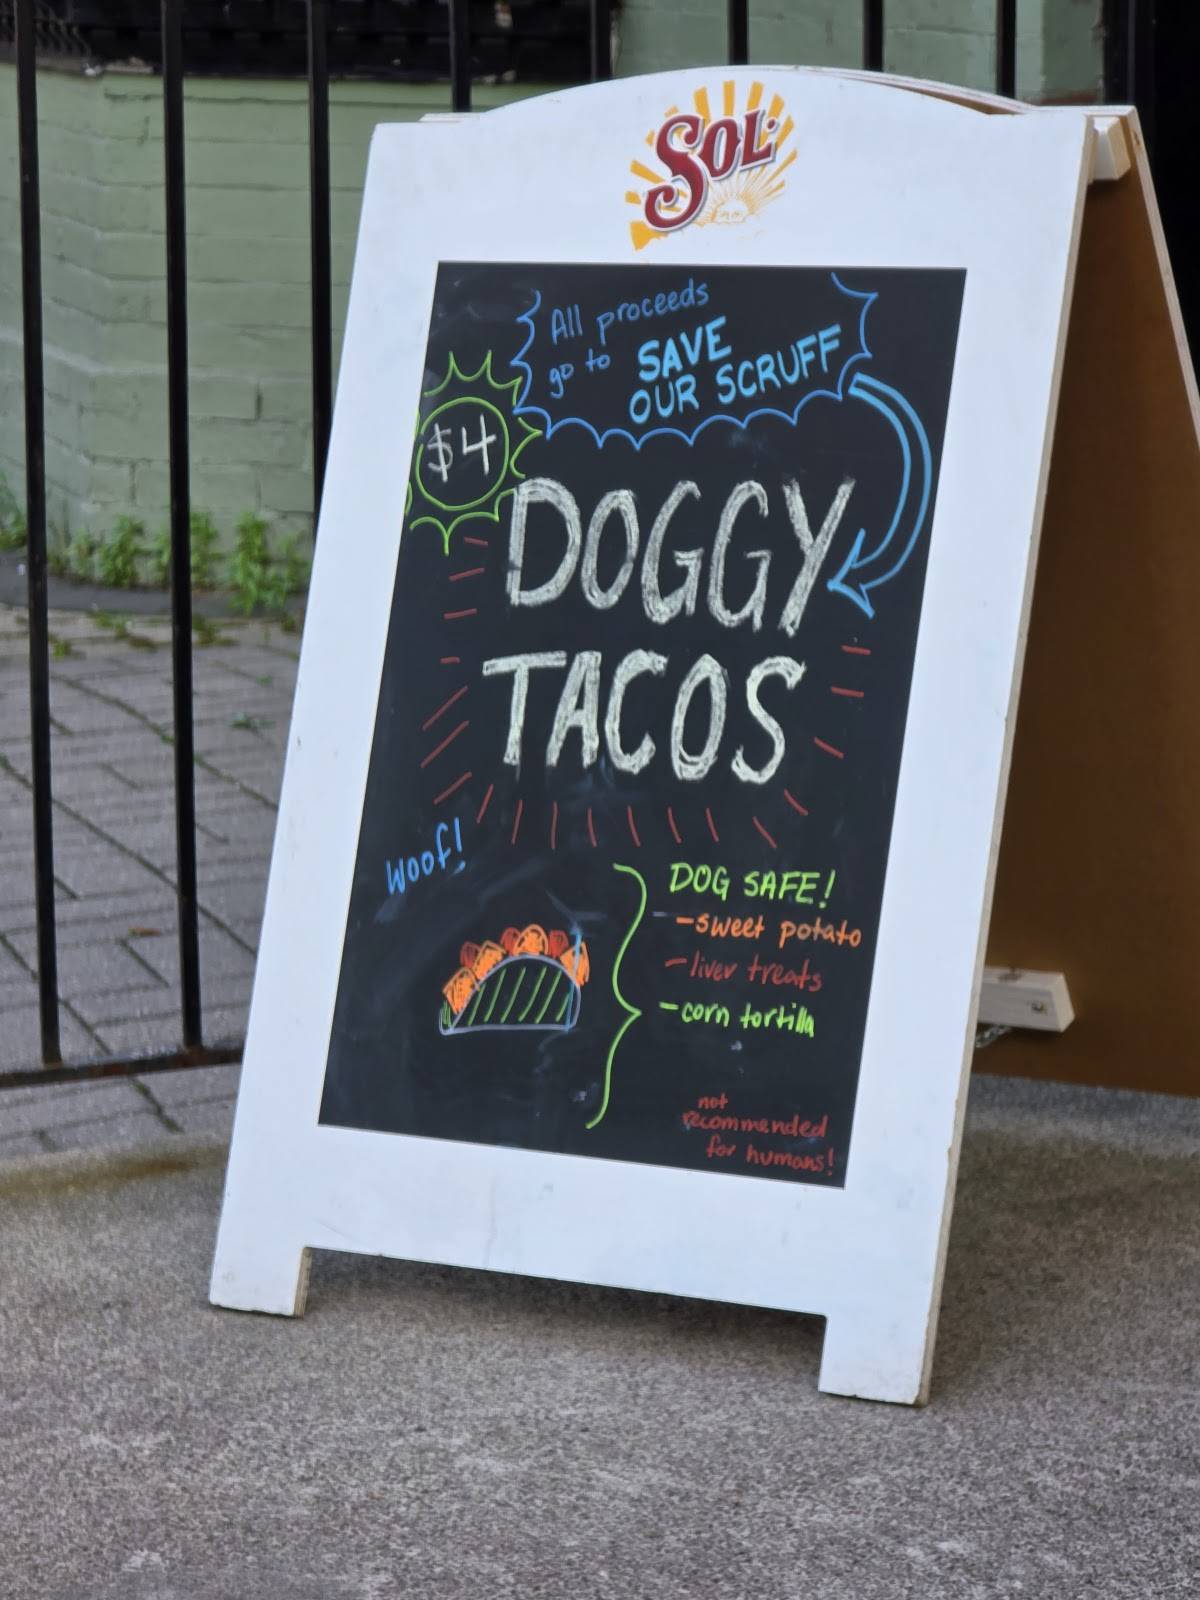 SOL
All proceeds
go to SAVE
OUR SCRUFF
$4
DOGGY
TACOS
Woof!
DOG SAFE!
-sweet potato
-liver treats
-corn tortilla
not
recommended
for humans!